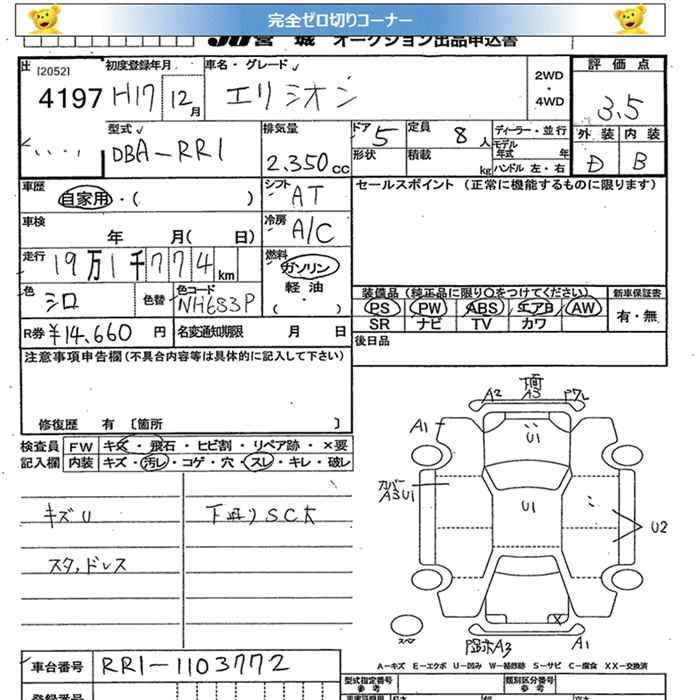 完全ゼロ切りコーナー
JU宮城 オークション出品申込書
[2052]
4197
初度登録年月
H17 12月
車名・グレード
エリシオン
2WD・4WD
評価点
3.5
外装 内装
D B
型式
DBA-RR1
排気量
2.350cc
ドア 5
形状
定員 8人
積載 kg
ディーラー・並行
モデル年式 年
ハンドル 左・右
車歴
自家用・( )
シフト AT
セールスポイント (正常に機能するものに限ります)
車検
年 月( 日)
冷房 A/C
走行
19万1千774km
燃料
ガソリン
軽油
( ・ )
色 シロ
色替
色コード NH683P
装備品 (純正品に限り○をつけてください) 新車保証書
PS PW ABS エアB AW
SR ナビ TV カワ
有・無
R券 ¥14,660 円
名変通知期限 月 日
後日品
注意事項申告欄 (不具合内容等は具体的に記入して下さい)
修復歴 有 [箇所 ]
検査員記入欄
FW キズ・飛石・ヒビ割・リペア跡・×要
内装 キズ・汚レ・コゲ・穴・スレ・キレ・破レ
キズU
下廻りSCK
スタッドレス
A2 下面A3 ワレ
A1
U1
カバーA3U1
U1
U2
X
スペア
A3
A1
A-キズ E-エクボ U-凹み W-補修跡 S-サビ C-腐食 XX-交換済
車台番号
RR1-1103772
型式指定番号 参考
類別区分番号 参考
登録番号